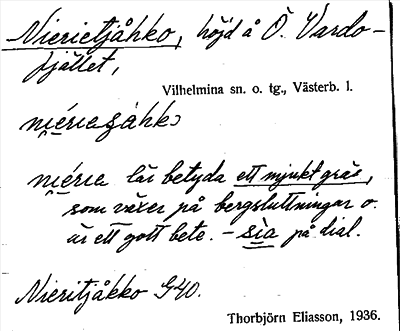 Nierietjåhko, höjd å Ö. Vardo-
fjället,
Vilhelmina sn. o. tg., Västerb. l.
niérieʒåhkɔ
niérie lär betyda ett mjukt gräs,
som växer på bergsluttningar o.
är ett gott bete. – sìa på dial.
Nieritjåkko G40.
Thorbjörn Eliasson, 1936.